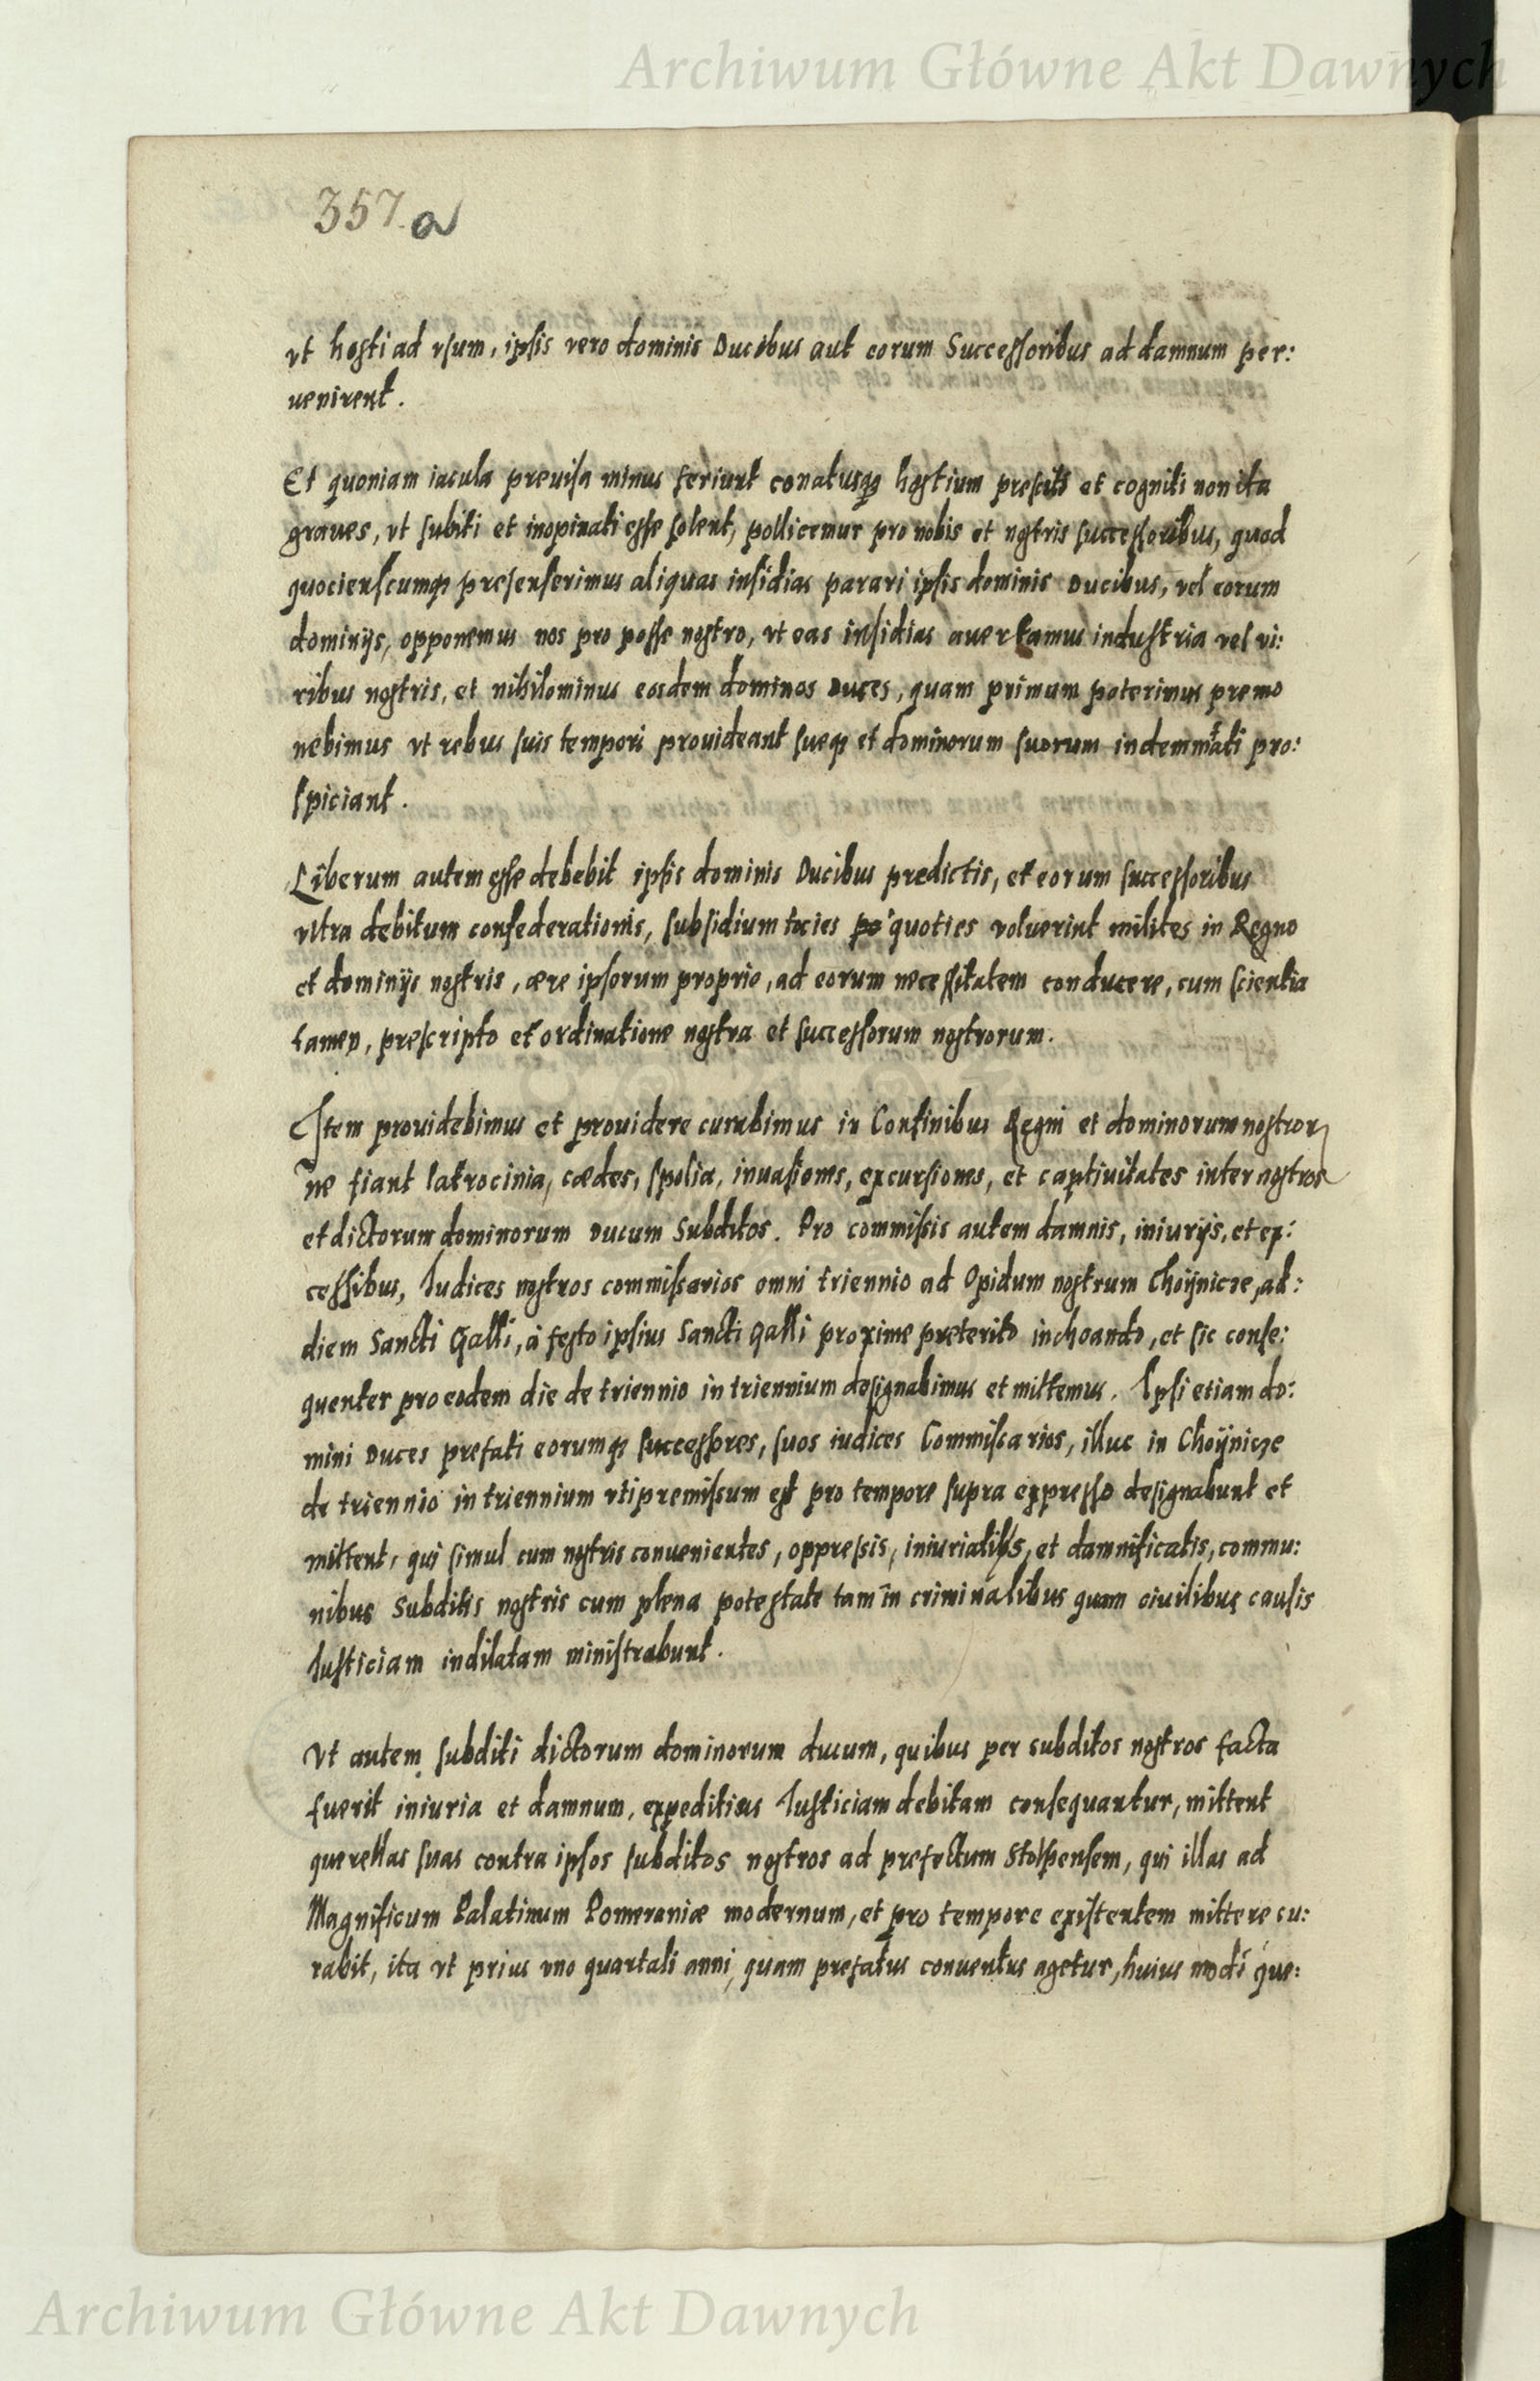 Archiwum Główne Akt Dawnych
357 a
vt hosti ad vsum, ipsis vero dominis Ducibus aut eorum Successoribus ad damnum per:
uenirent.
Et quoniam iacula preuisa minus feriunt conatusq3 hostium presciti et cogniti non ita
graues, vt subiti et inopinati esse solent, pollicemur pro nobis et nostris successoribus, quod
quocienscumq3 presenserimus aliquas insidias parari ipsis dominis Ducibus, vel eorum
dominijs, opponemus nos pro posse nostro, vt eas insidias auertamus industria vel vi:
ribus nostris, et nihilominus eosdem dominos Duces, quam primum poterimus premo
nebimus vt rebus suis tempori prouideant sueq3 et dominorum suorum indemnitati pro:
spiciant.
Liberum autem esse debebit ipsis dominis Ducibus predictis, et eorum successoribus
vltra debitum confederationis, subsidium tocies quoties voluerint milites in Regno
et dominijs nostris, ære ipsorum proprio, ad eorum necessitatem conducere, cum scientia
tamen, prescripto et ordinatione nostra et successorum nostrorum.
Item prouidebimus et prouidere curabimus in Confinibus Regni et dominorum nostror
ne fiant latrocinia, cædes, spolia, inuasiones, excursiones, et captiuitates inter nostros
et dictorum dominorum Ducum Subditos. Pro commissis autem damnis, iniurijs, et ex:
cessibus, Iudices nostros commissarios omni triennio ad Opidum nostrum Choÿnicze, ad:
diem Sancti Galli, à festo ipsius Sancti Galli proxime preterito inchoando, et sic conse:
quenter pro eodem die de triennio in triennium designabimus et mittemus. Ipsi etiam do:
mini Duces prefati eorumq3 successores, suos iudices Commissarios, illuc in Choÿnicze
de triennio in triennium vti premissum est pro tempore supra expresso designabunt et
mittent, qui simul cum nostris conuenientes, oppressis, iniuriatis, et damnificatis, commu:
nibus Subditis nostris cum plena potestate tam in criminalibus quam ciuilibus causis
Iusticiam indilatam ministrabunt.
Vt autem subditi dictorum dominorum ducum, quibus per subditos nostros facta
fuerit iniuria et damnum, expeditius Iusticiam debitam consequantur, mittent
querellas suas contra ipsos subditos nostros ad prefectum Stolpensem, qui illas ad
Magnificum Palatinum Pomeraniæ modernum, et pro tempore existentem mittere cu:
rabit, ita vt prius vno quartali anni, quam prefatus conuentus agetur, huius modi que:
Archiwum Główne Akt Dawnych